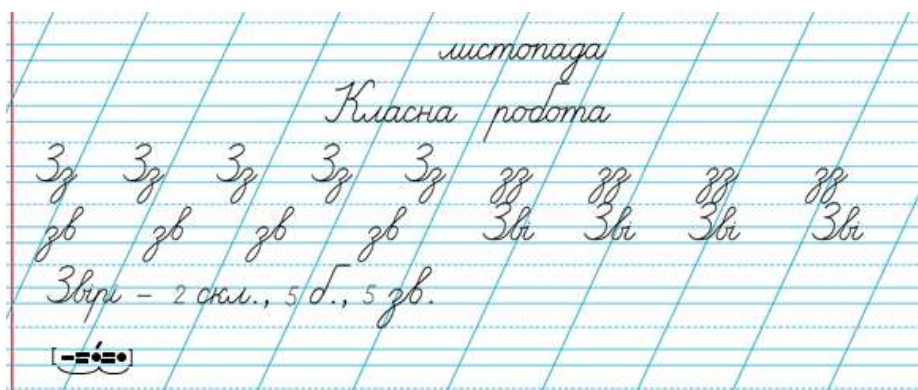 листопада
Класна робота
Зз Зз Зз Зз Зз зз зз зз зз
зв зв зв зв Зві Зві Зві Зві
Звірі – 2 скл., 5 б., 5 зв.
[–=•́=•]